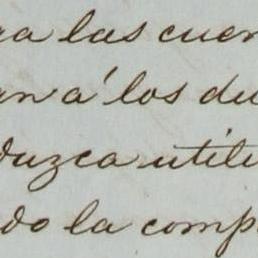 ra las cuen
an á los du
duzca utili
do la comp